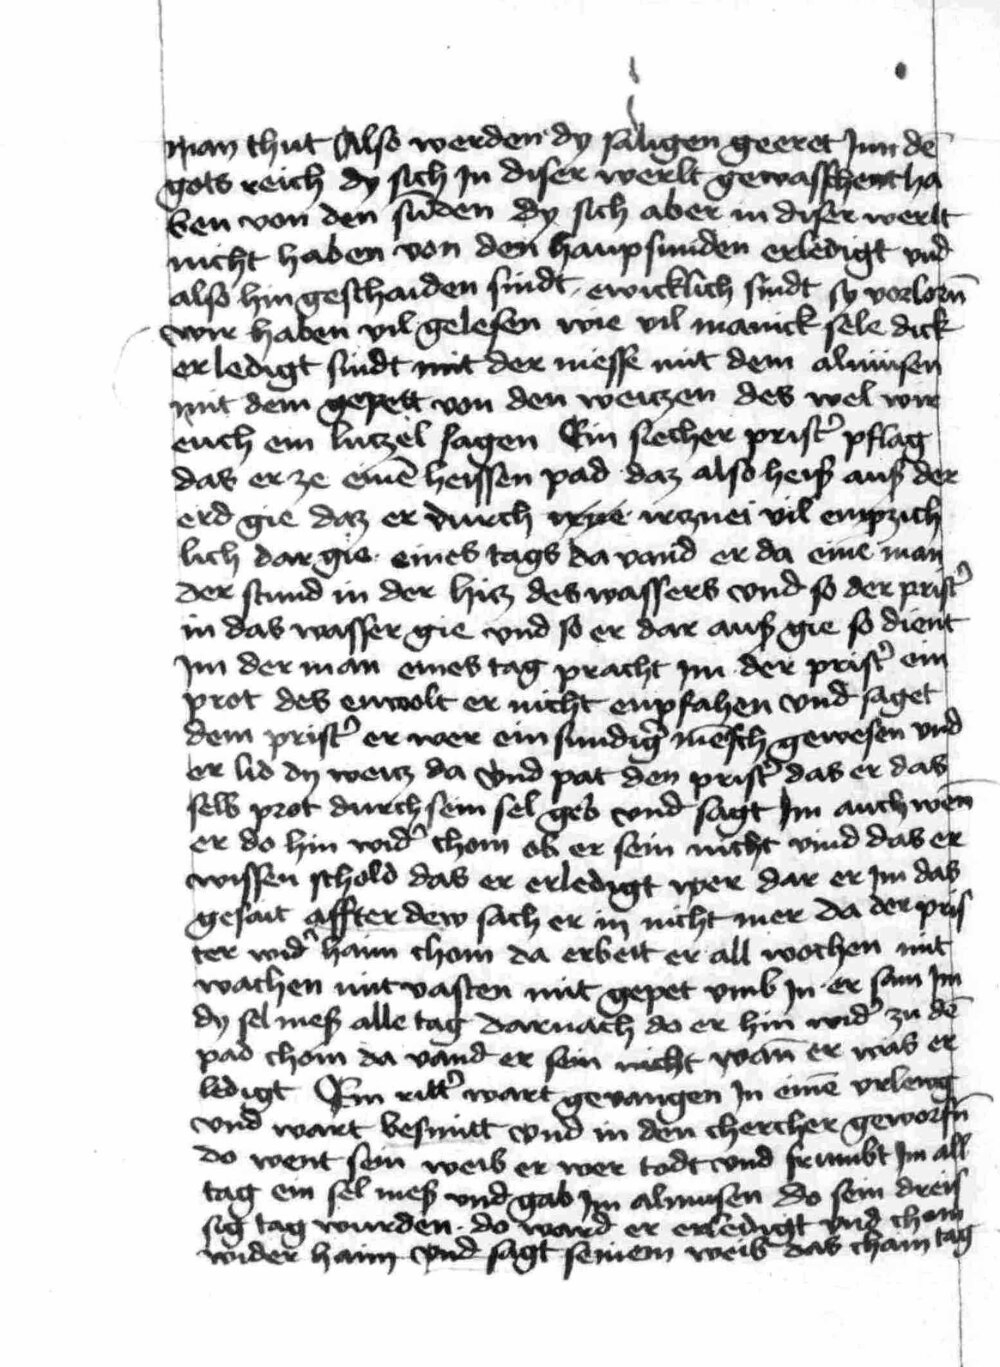 man thut Also werden dy saligen geeret Jnn dē
gots reich dy sich Jn diser werlt gewasschent ha
ben von den sūden dy sich aber in diser werlt
nicht haben von den haupsunden erledigt vnd
also hin geschaiden sindt ewicklich sindt sy vorlorn̄
wir haben vil gelesen wie vil manick sele dick
erledigt sindt mit der messe mit dem almüsen
mit dem gepett von den weiczen des wel wir
euch ein luczel sagen Ein siecher pristʼ pflag
das er ze einē heissen pad daz also heiß auß der
erd gie daz er durch ercznei vil empzich
lich dar gie eines tags da vand er da eine man
der stund in der hicz des wassers vnd so der pristʼ
in das wasser gie vnd so er dar auß gie so dient
im der man eines tag pracht jm der pristʼ ein
prot des enwolt er nicht enpfahen vnd saget
dem pristʼ er wer ein sundigʼ mēsch gewesen vnd
er lid dy weicz da vnd pat den pristʼ das er das
selb prot durch sein sel geb vnd sagt Jm auch wēn
er do hin widʼ chom ob er sein nicht vind das er
wissen schold das er erledigt wer dar er Jm das
gesait affter dew sach er in nicht mer da der pris
ter widʼ haim chom da erbeit er all wochen mit
wachen mit vasten mit gepet vmb Jn er sam Jm
dy sel meß alle tag darnach do er hin widʼ zu dē
pad chom da vand er sein nicht wan̄ er was er
ledigt Ein rittʼ wart gevangen Jn einē vrleug
vnd wart besmitt vnd in den chercher geworfn̄
do went sein weib er wer todt vnd frumbt Jm all
tag ein sel meß vnd gab Jm almusen do sein dreis
sig tag wurden do ward er erledigt vnd chom
wider haim vnd sagt seinem weib das chain tag